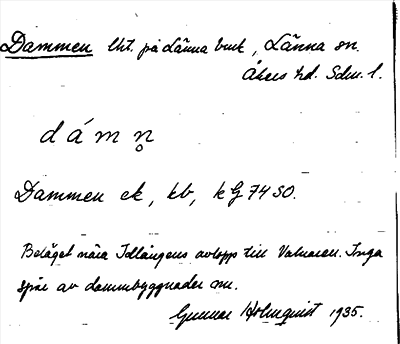 Dammen lht. på Länna bruk, Länna sn.
Åkers hd. Sdm. l.
dámn̥
Dammen ek, kb, kG 74 SO.
Beläget nära Idlångens avlopp till Valnaren. Inga
spår av dammbyggnader nu.
Gunnar Holmquist 1935.